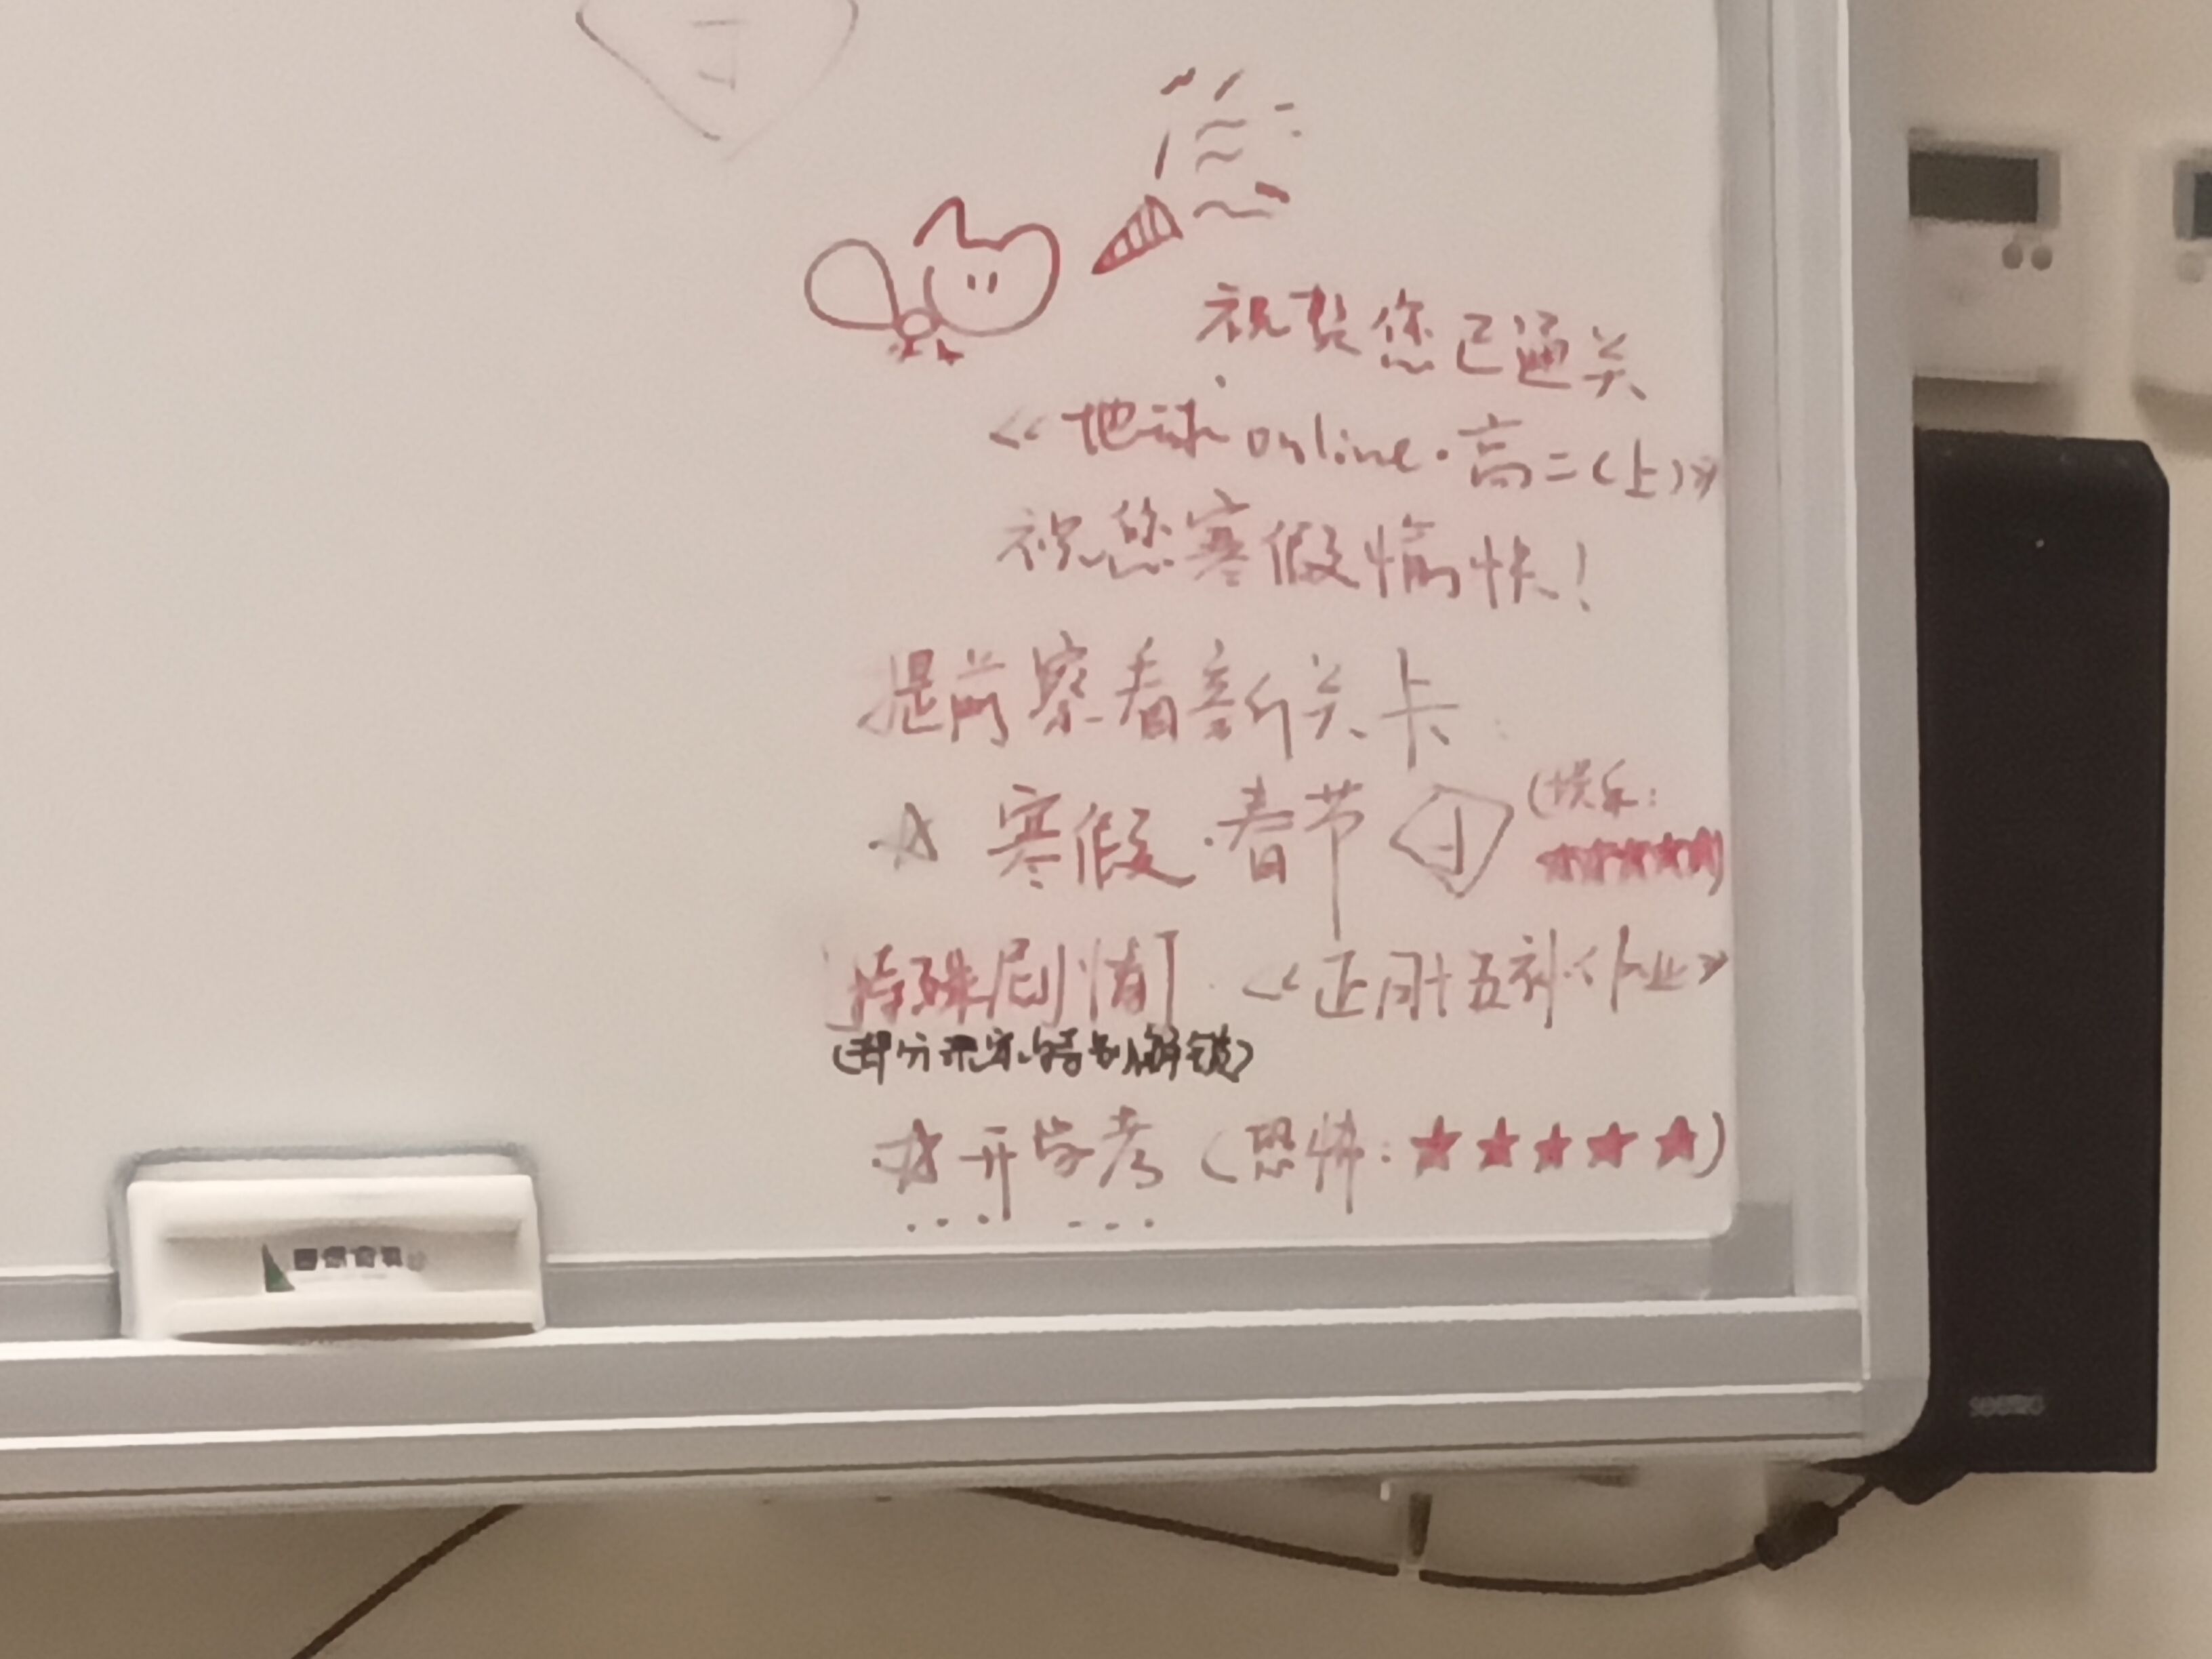 祝贺您已通关
《地球online·高二(上)》
祝您寒假愉快!
提前察看新关卡
☆ 寒假·春节 (娱乐:
★★★★★)
[特殊剧情] 《正月十五补作业》
(部分玩家特别解锁)
☆开学考 (恐怖:★★★★★)
... ...